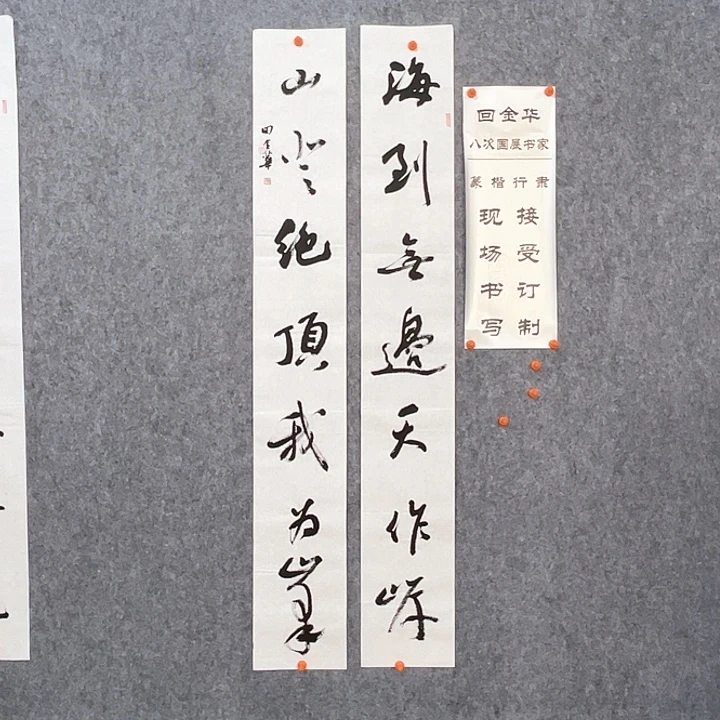 海到無邊天作岸
山登絶頂我为峯
回金華
回金华
八次国展书家
篆楷行肃
接受订制
现场书写